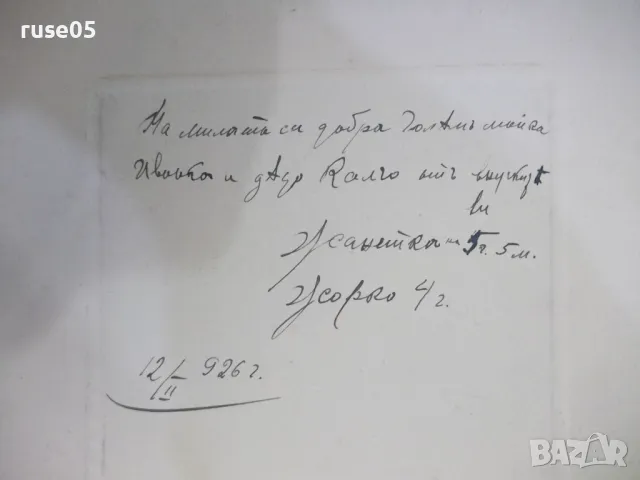 ruse05
На милата си добра Голямъ майка
Ивонка и дядо Калчо отъ внуцитѣ
ви
Жанетка на 5 г. 5 м.
Жорко 4 г.
12/II 926 г.
BAZAR